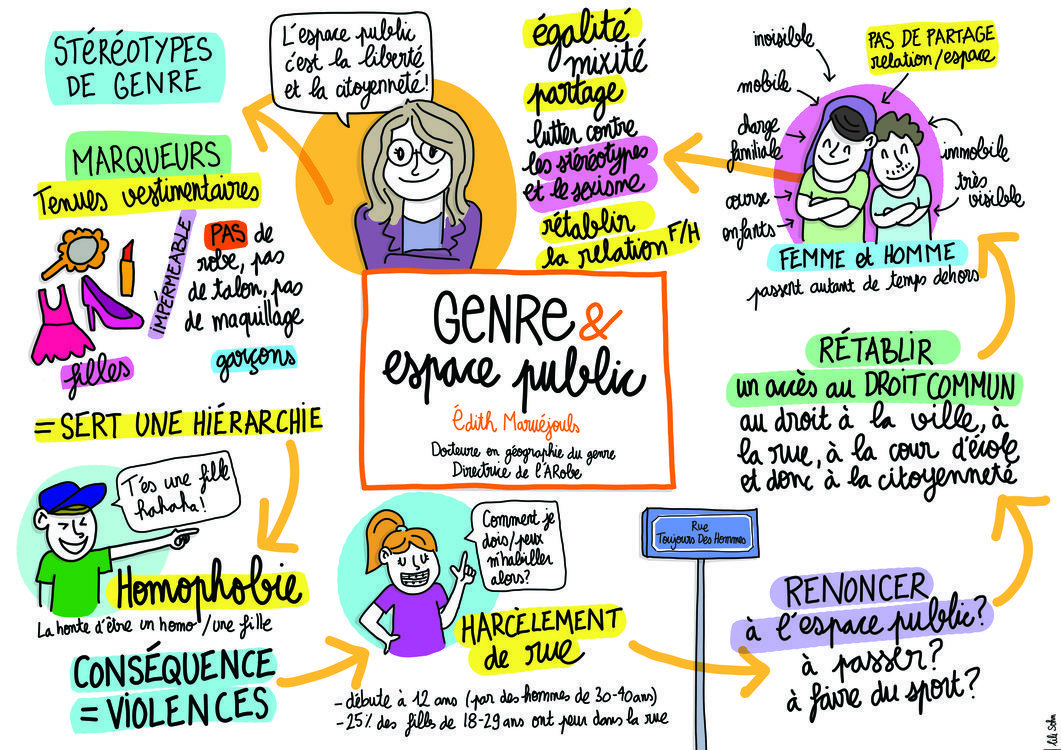 GENRE &
espace public
Édith Maruéjouls
Docteure en géographie du genre
Directrice de l'ARobe
L'espace public
c'est la liberté
et la citoyenneté!
STÉRÉOTYPES
DE GENRE
MARQUEURS
Tenues vestimentaires
IMPÉRMEABLE
filles
PAS de
robe, pas
de talon, pas
de maquillage
garçons
= SERT UNE HIÉRARCHIE
T'és une fille
hahaha!
Homophobie
La honte d'être un homo/une fille
CONSÉQUENCE
= VIOLENCES
Comment je
dois/peux
m'habiller
alors?
HARCÈLEMENT
de rue
- débute à 12 ans (par des hommes de 30-40ans)
- 25% des filles de 18-29 ans ont peur dans la rue
Rue
Toujours Des Hommes
RENONCER
à l'espace public?
à passer?
à faire du sport?
RÉTABLIR
un accès au DROIT COMMUN
au droit à la ville, à
la rue, à la cour d'école
et donc à la citoyenneté
FEMME et HOMME
passent autant de temps dehors
invisible
mobile
charge
familiale
course
enfants
PAS DE PARTAGE
relation/espace
immobile
très
visible
égalité
mixité
partage
lutter contre
les stéréotypes
et le sexisme
rétablir
la relation F/H